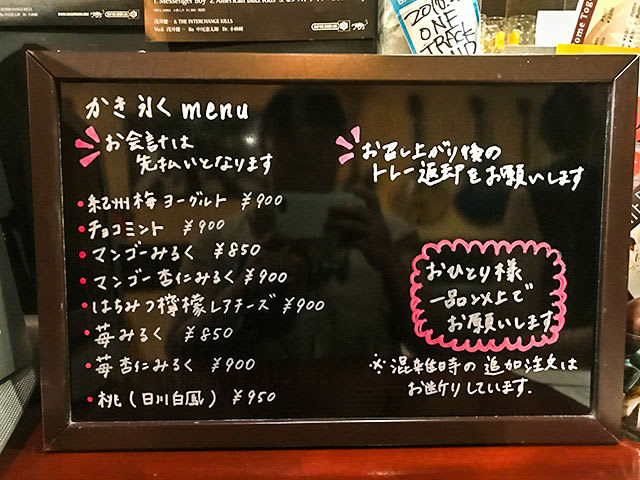 1. Messenger Boy 2.
THE INTERCHANGE KILLS
2016.
ONE
TRACK
かき氷く menu
お会計は
先払いとなります
・紀州梅ヨーグルト ¥900
・チョコミント ¥900
・マンゴーみるく ¥850
・マンゴー杏仁みるく ¥900
・はちみつ檸檬レアチーズ ¥900
・苺みるく ¥850
・苺杏仁みるく ¥900
・桃(日川白鳳) ¥950
お召し上がり後の
トレー返却をお願いします
おひとり様
一品以上で
お願いします
※混雑時の追加注文は
お断りしています.